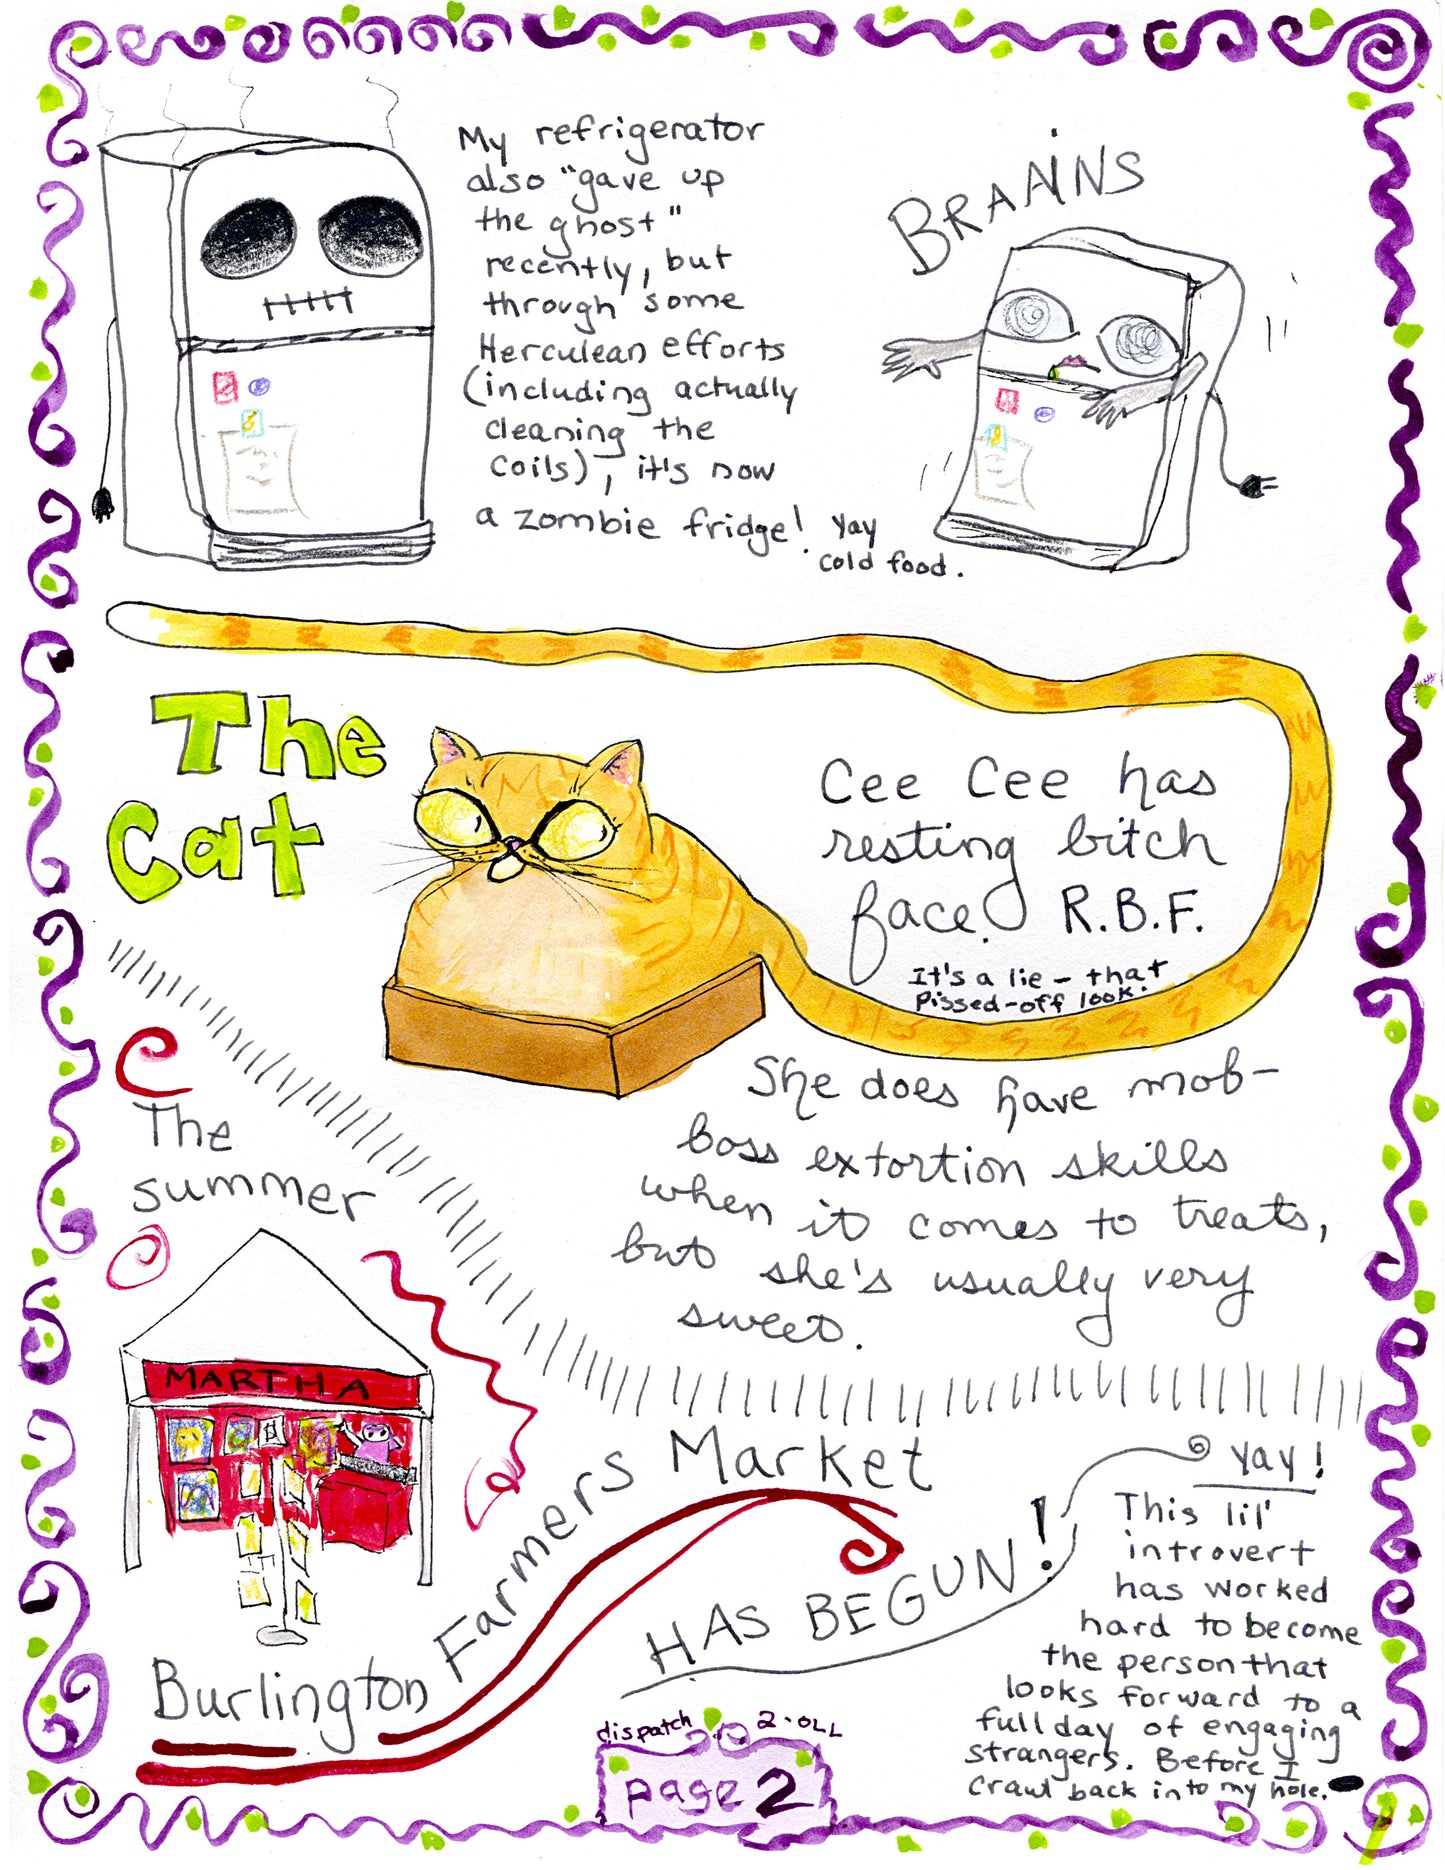 My refrigerator
also "gave up
the ghost"
recently, but
through some
Herculean efforts
(including actually
cleaning the
coils), it's now
a zombie fridge! Yay
cold food.
BRAAINS
The
Cat
Cee Cee has
resting bitch
face. R.B.F.
It's a lie - that
pissed-off look.
She does have mob-
boss extortion skills
when it comes to treats,
but she's usually very
sweet.
The
summer
MARTHA
Burlington Farmers Market
HAS BEGUN!
Yay!
This lil'
introvert
has worked
hard to become
the person that
looks forward to a
full day of engaging
strangers. Before I
crawl back into my hole.
dispatch 2.OLL
page 2